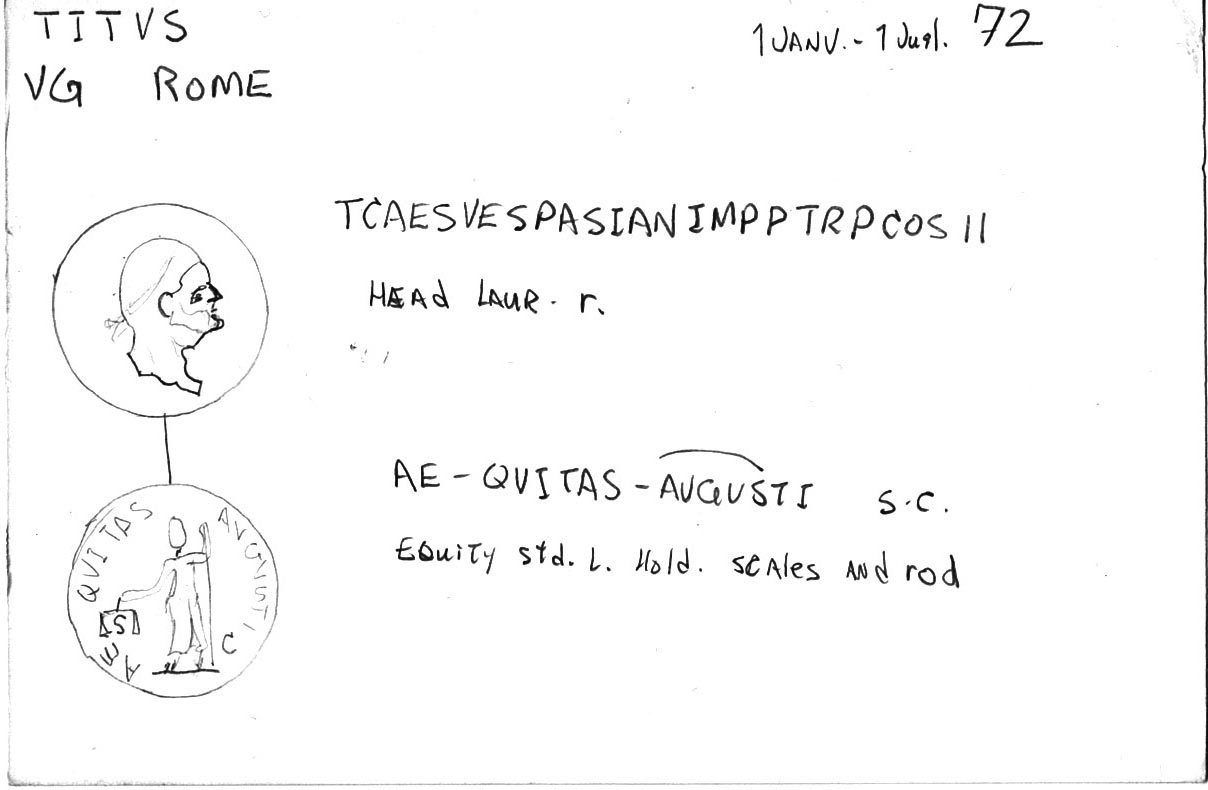 TITVS
1 JANV. - 1 Jugl. 72
VG ROME
TCAESVESPASIANIMPPTRPCOS II
HEAD LAUR. r.
AE - QVITAS - AVGVSTI S.C.
EQuiTy std. L. Hold. SCAles AND rod
AE QVITAS AVGVSTI
S C